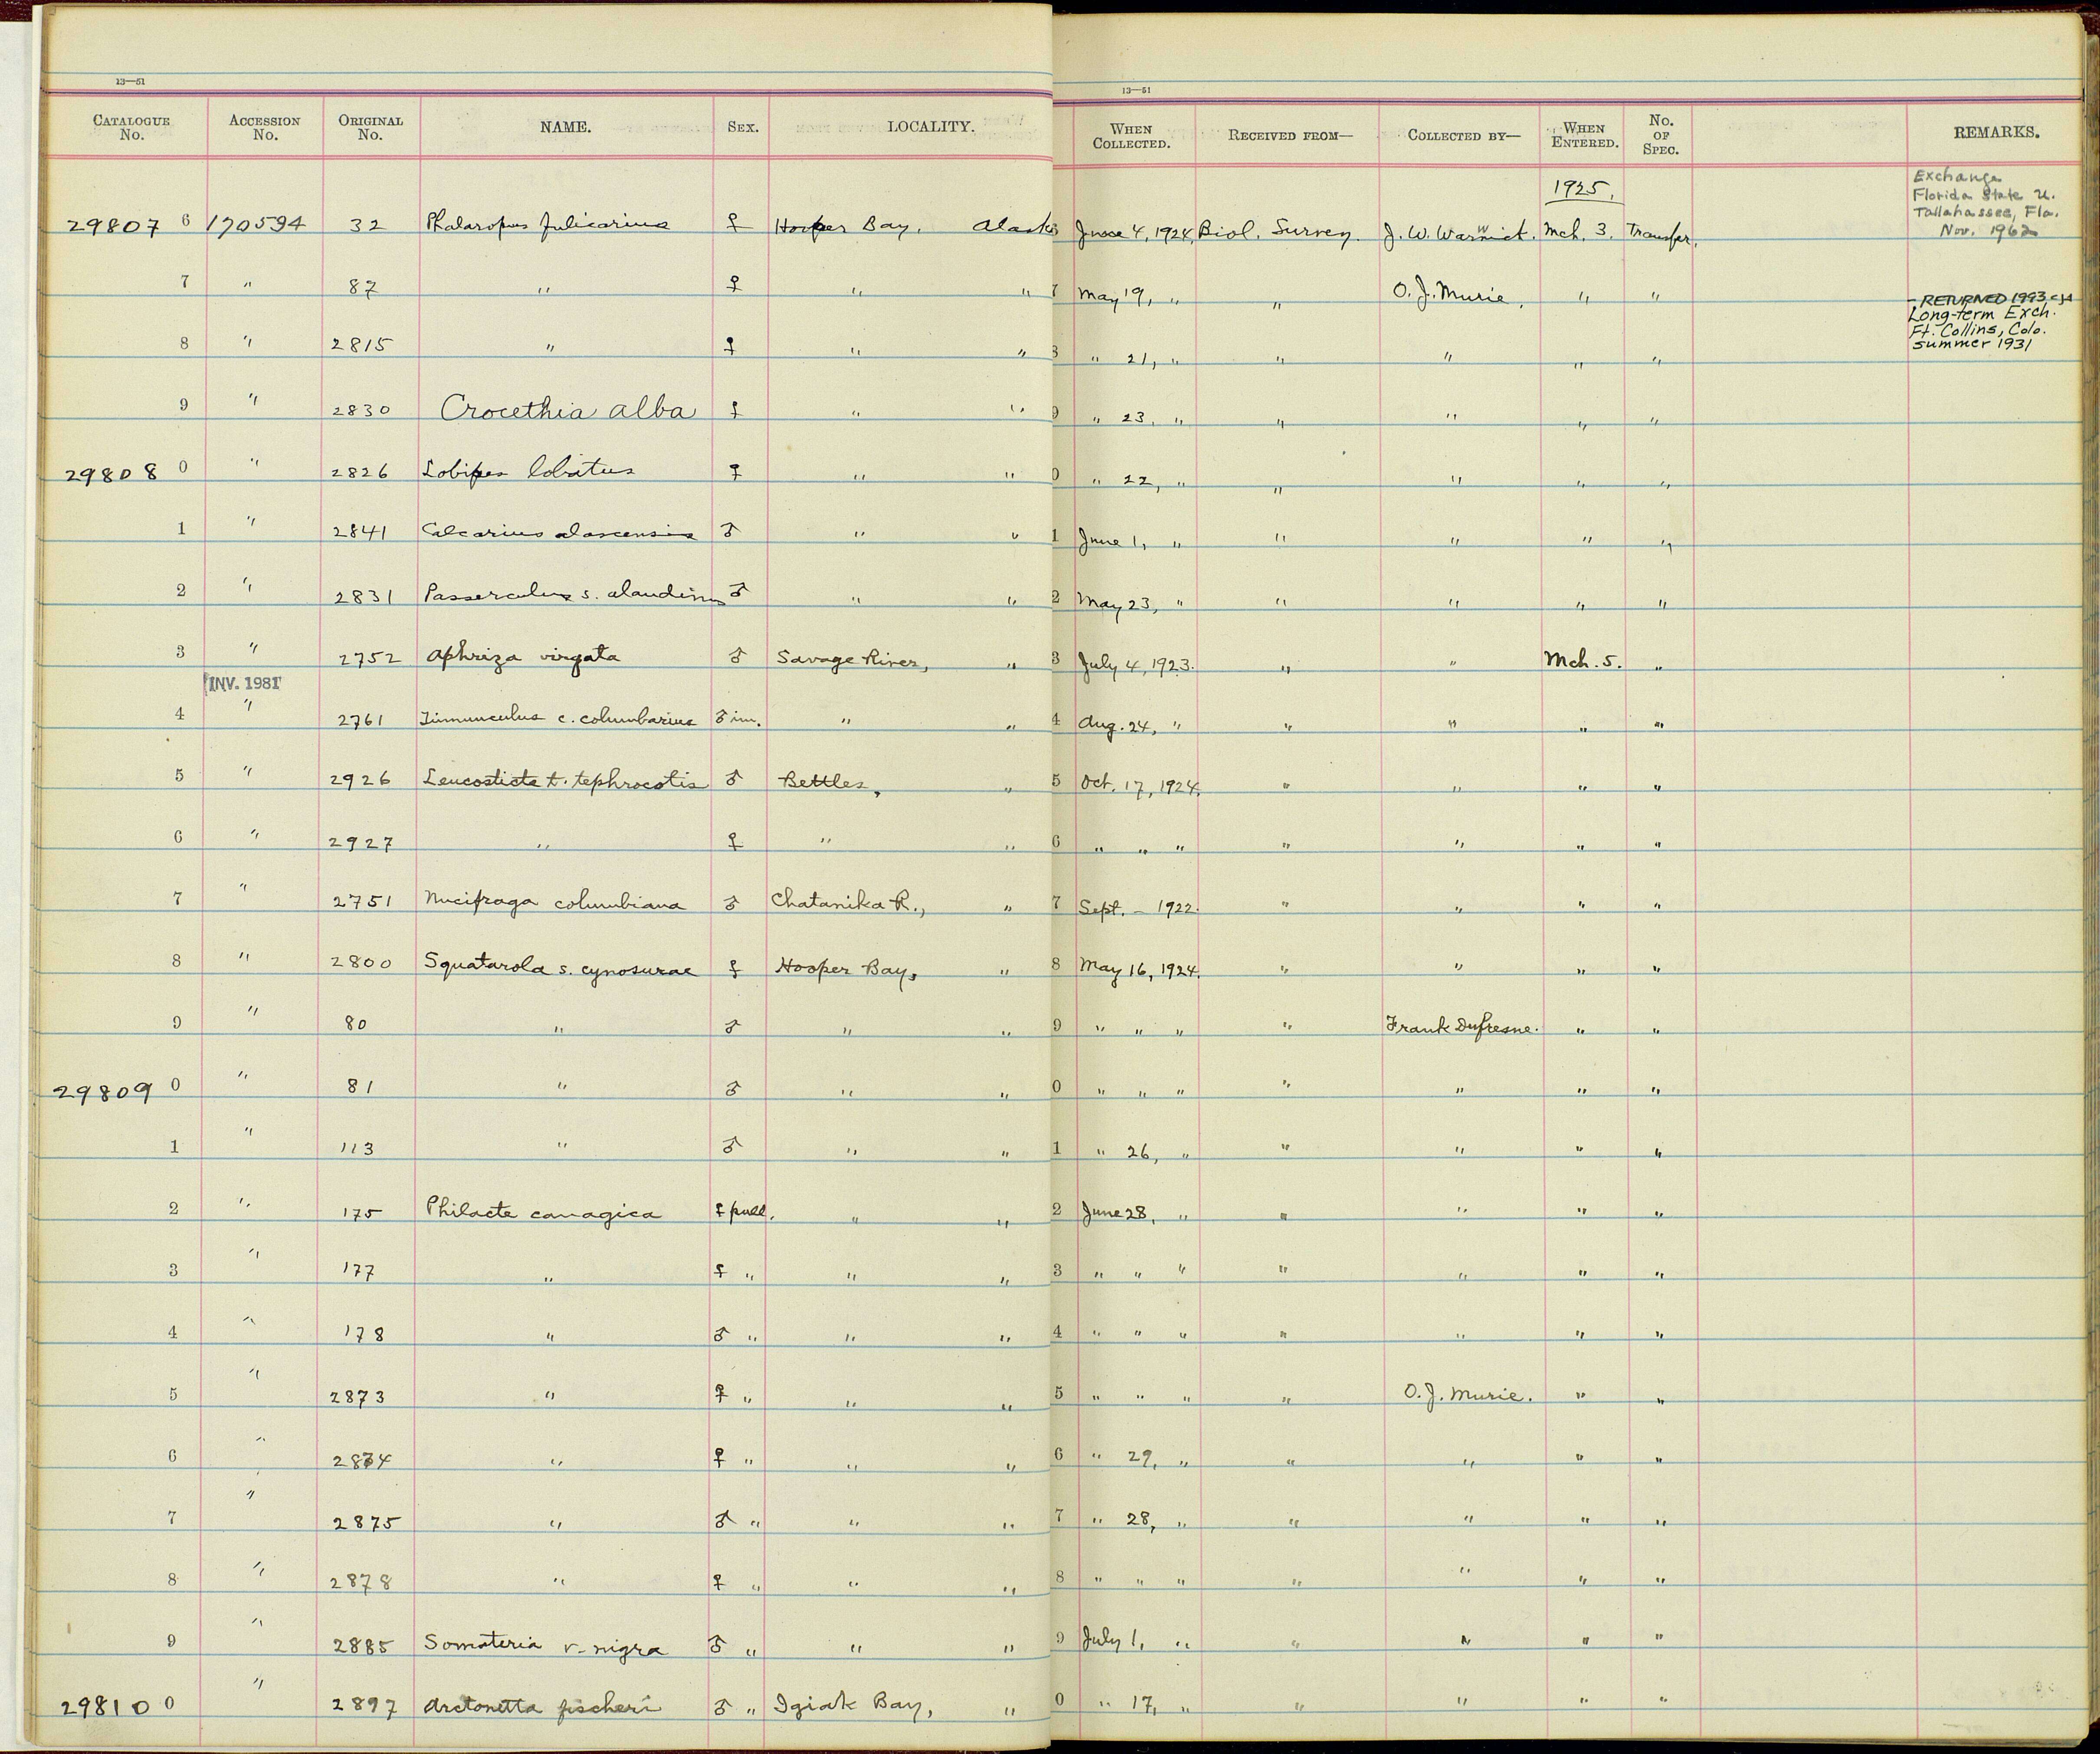 13—51
13—51
CATALOGUE No. ACCESSION No. ORIGINAL No. NAME. SEX. LOCALITY. WHEN COLLECTED. RECEIVED FROM— COLLECTED BY— WHEN ENTERED. No. OF SPEC. REMARKS.
1925.
Exchange
Florida State U.
Tallahassee, Fla.
Nov. 1962
29807 6 170594 32 Phalaropus fulicarius ♀ Hooper Bay, Alaska June 4, 1924. Biol. Survey. J. W. Warwick. Mch. 3. Transfer.
7 " 87 " ♀ " " 7 May 19, " " O. J. Murie. " "
- RETURNED 1993
Long-term Exch.
Ft. Collins, Colo.
summer 1931
8 " 2815 " ♀ " " 8 " 21, " " " " "
9 " 2830 Crocethia alba ♀ " " 9 " 23, " " " " "
29808 0 " 2826 Lobipes lobatus ♀ " " 0 " 22, " " " " "
1 " 2841 Calcarius alascensis ♂ " " 1 June 1, " " " " "
2 " 2831 Passerculus s. alaudinus ♂ " " 2 May 23, " " " " "
3 " 2752 Aphriza virgata ♂ Savage River, " 3 July 4, 1923. " " Mch. 5. "
INV. 1981
4 " 2761 Tinnunculus c. columbarius ♂ im. " " 4 Aug. 24, " " " " "
5 " 2926 Leucosticte t. tephrocotis ♂ Bettles, " 5 Oct. 17, 1924. " " " "
6 " 2927 " ♀ " " 6 " " " " " " "
7 " 2751 Nucifraga columbiana ♂ Chatanika R., " 7 Sept. – 1922. " " " "
8 " 2800 Squatarola s. cynosurae ♀ Hooper Bay, " 8 May 16, 1924. " " " "
9 " 80 " ♂ " " 9 " " " " Frank Dufresne. " "
29809 0 " 81 " ♂ " " 0 " " " " " " "
1 " 113 " ♂ " " 1 " 26, " " " " "
2 " 175 Philacte canagica ♀ pull. " " 2 June 28, " " " " "
3 " 177 " ♀ " " " 3 " " " " " " "
4 " 178 " ♂ " " " 4 " " " " " " "
5 " 2873 " ♀ " " " 5 " " " " O. J. Murie. " "
6 " 2874 " ♀ " " " 6 " 29, " " " " "
7 " 2875 " ♂ " " " 7 " 28, " " " " "
8 " 2878 " ♀ " " " 8 " " " " " " "
9 " 2885 Somateria v-nigra ♂ " " " 9 July 1, " " " " "
29810 0 " 2897 Arctonetta fischeri ♂ " Igiak Bay, " 0 " 17, " " " " "